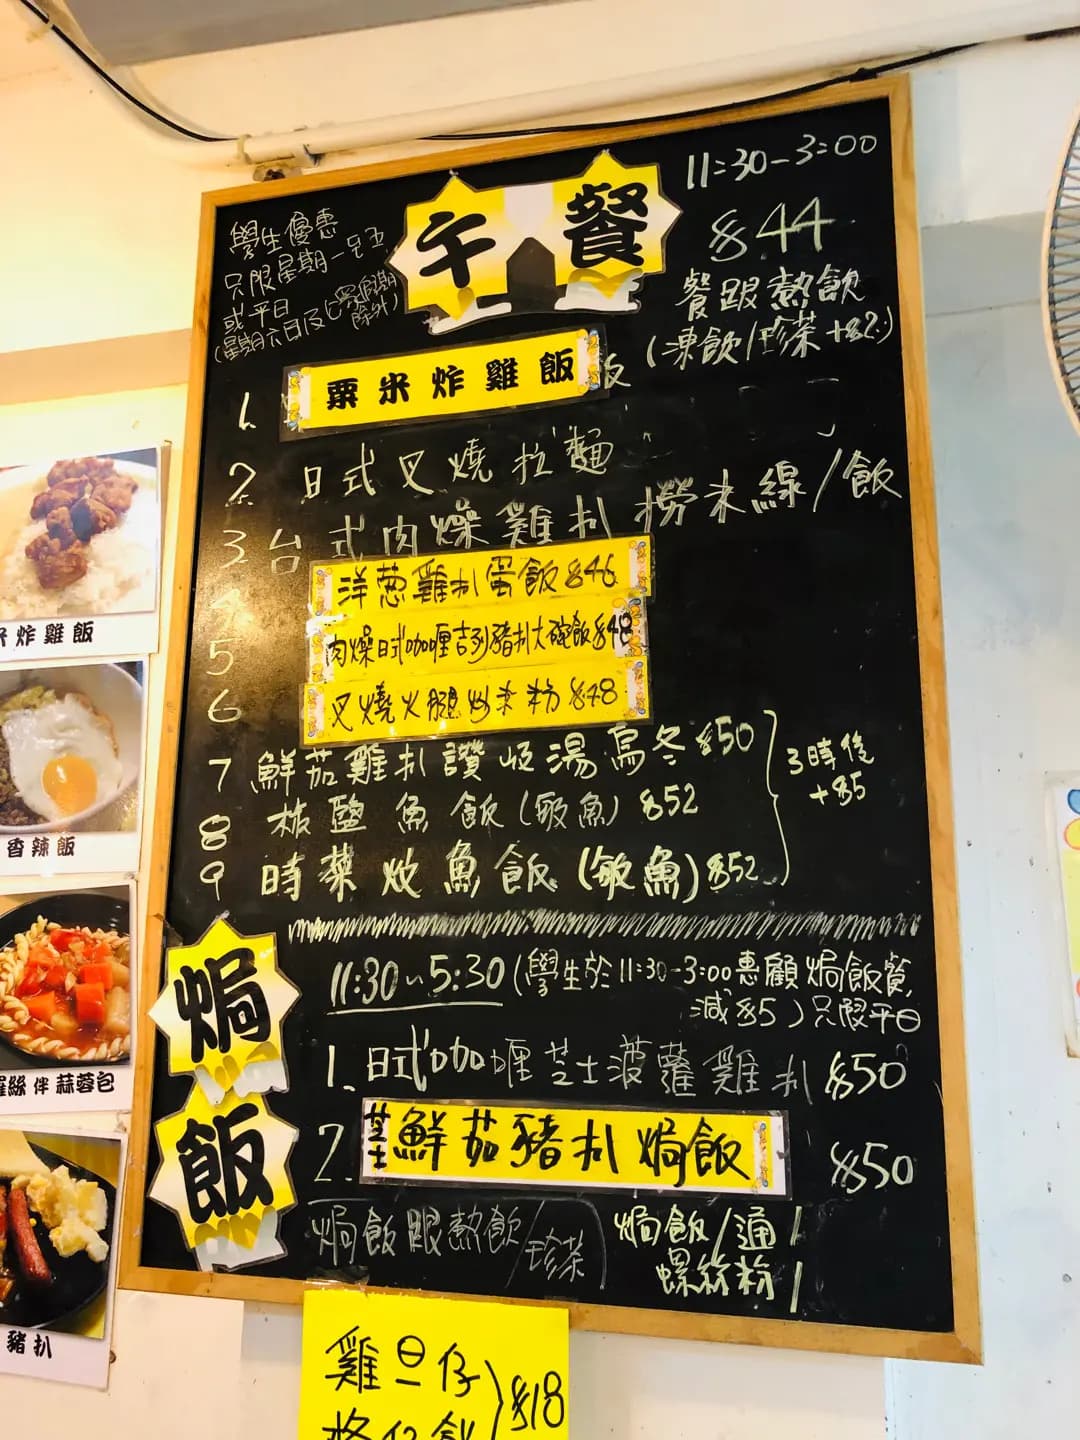 午餐
11:30-3:00
學生優惠
只限星期一至五
或平日
(星期六日及公眾假期除外)
$44
餐跟熱飲
(凍飲/珍茶+$2)
1. 粟米炸雞飯
2. 日式叉燒拉麵
3. 台式肉燥雞扒撈米線/飯
4 洋葱雞扒蛋飯$46
5 肉燥日式咖喱吉列豬扒大碗飯$48
6 叉燒火腿炒米粉$48
7 鮮茄雞扒讚岐湯烏冬$50
8 椒鹽魚飯(鯇魚)$52
9 時菜炆魚飯(鯇魚)$52
3時後
+$5
焗飯
11:30~5:30(學生於11:30-3:00惠顧焗飯餐,
減$5)只限平日
1. 日式咖喱芝士菠蘿雞扒$50
2. 芝士鮮茄豬扒焗飯 $50
焗飯跟熱飲/珍茶
焗飯/通/
螺絲粉/
雞旦仔
$18
米炸雞飯
香辣飯
羅絲伴蒜蓉包
豬扒